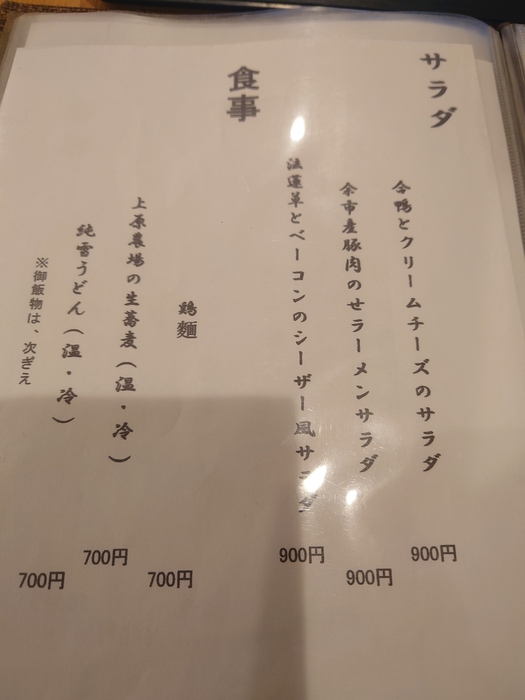 サラダ
合鴨とクリームチーズのサラダ
900円
余市産豚肉のせラーメンサラダ
900円
法蓮草とベーコンのシーザー風サラダ
900円
食事
鶏麺
700円
上原農場の生蕎麦（温・冷）
700円
純雪うどん（温・冷）
700円
※御飯物は、次ぎえ